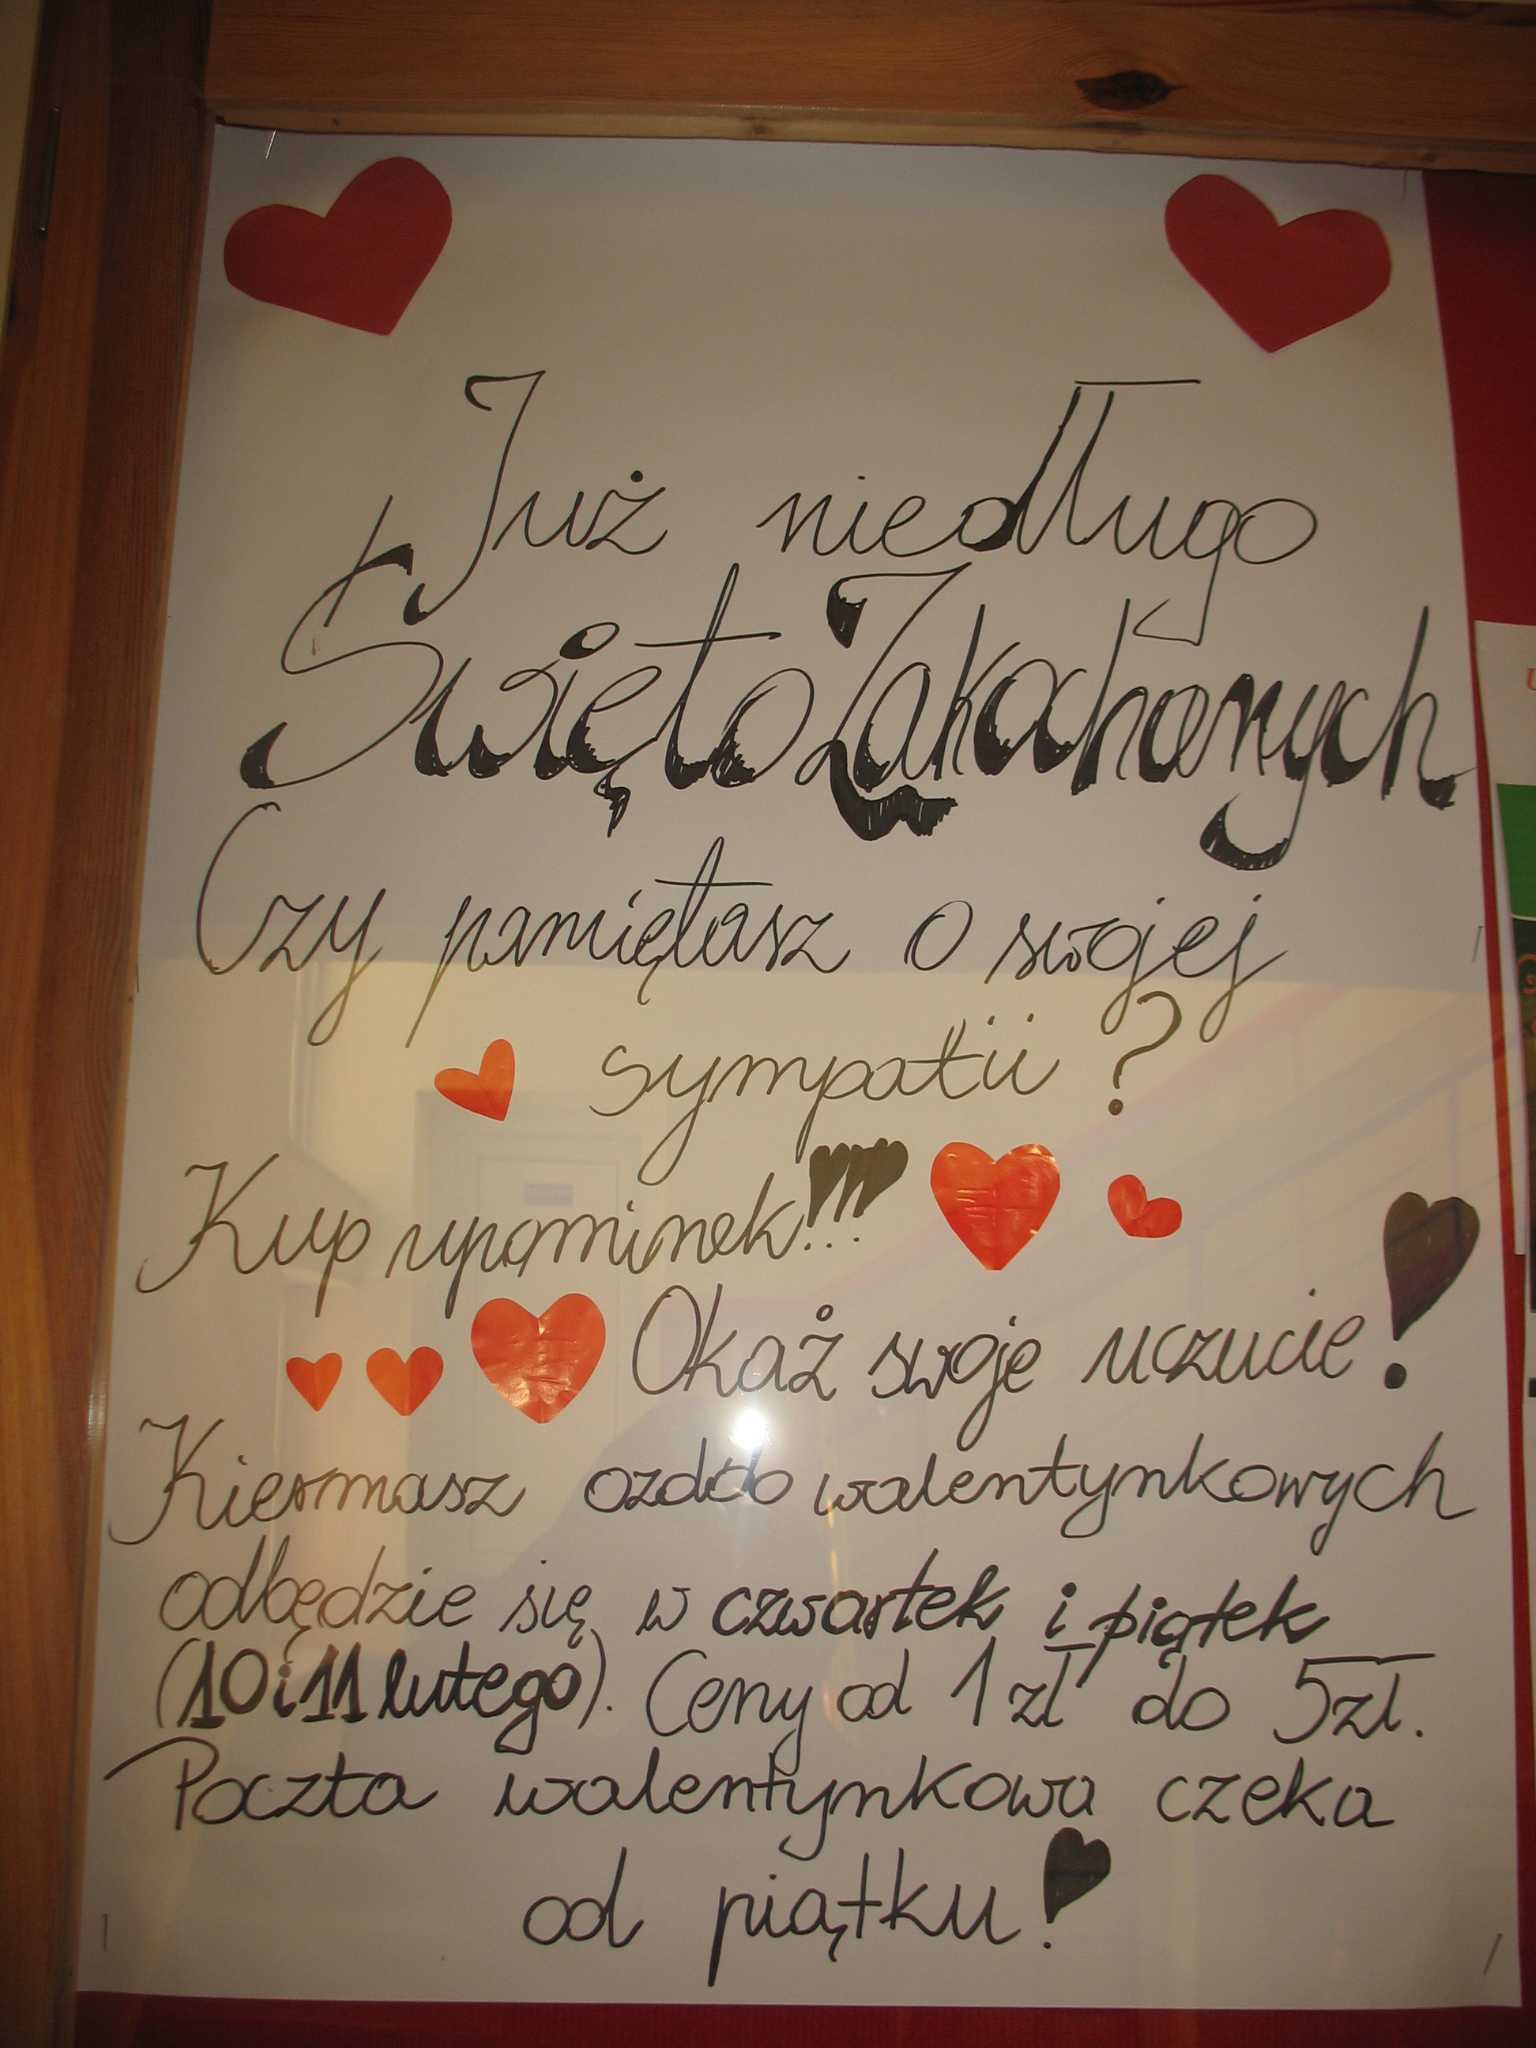 Już niedługo
Święto Zakochanych
Czy pamiętasz o swojej
sympatii?
Kup upominek!!!
Okaż swoje uczucie!
Kiermasz ozdób walentynkowych
odbędzie się w czwartek i piątek
(10 i 11 lutego). Ceny od 1 zł do 5 zł.
Poczta walentynkowa czeka
od piątku!